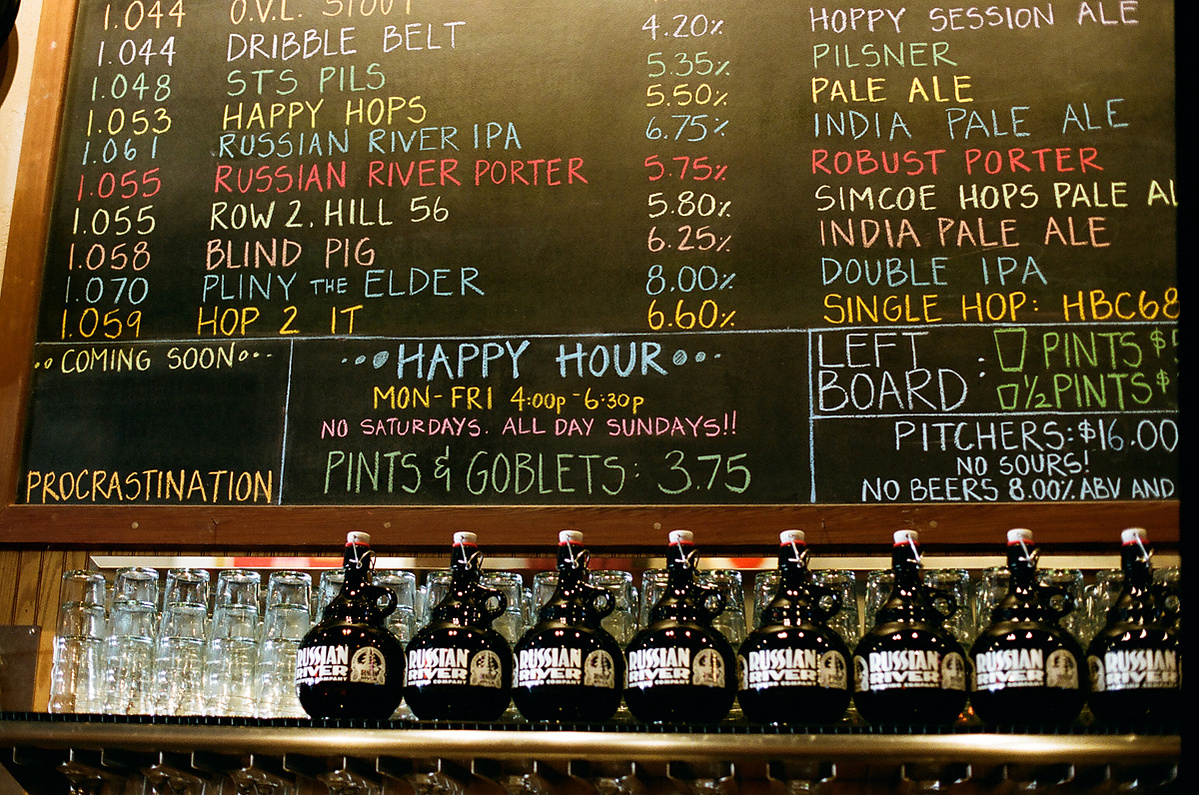 1.044 O.V.L. STOUT
1.044 DRIBBLE BELT 4.20% HOPPY SESSION ALE
1.048 STS PILS 5.35% PILSNER
1.053 HAPPY HOPS 5.50% PALE ALE
1.061 RUSSIAN RIVER IPA 6.75% INDIA PALE ALE
1.055 RUSSIAN RIVER PORTER 5.75% ROBUST PORTER
1.055 ROW 2, HILL 56 5.80% SIMCOE HOPS PALE AL
1.058 BLIND PIG 6.25% INDIA PALE ALE
1.070 PLINY THE ELDER 8.00% DOUBLE IPA
1.059 HOP 2 IT 6.60% SINGLE HOP: HBC68
COMING SOON
PROCRASTINATION
HAPPY HOUR
MON-FRI 4:00p-6:30p
NO SATURDAYS. ALL DAY SUNDAYS!!
PINTS & GOBLETS: 3.75
LEFT BOARD:
PINTS $5
1/2 PINTS $
PITCHERS: $16.00
NO SOURS!
NO BEERS 8.00% ABV AND
RUSSIAN RIVER
RUSSIAN RIVER
RUSSIAN RIVER BREWING COMPANY
RUSSIAN RIVER BREWING COMPANY
RUSSIAN RIVER BREWING COMPANY
RUSSIAN RIVER BREWING COMPANY
RUSSIAN RIVER
RUSSIAN RIVER